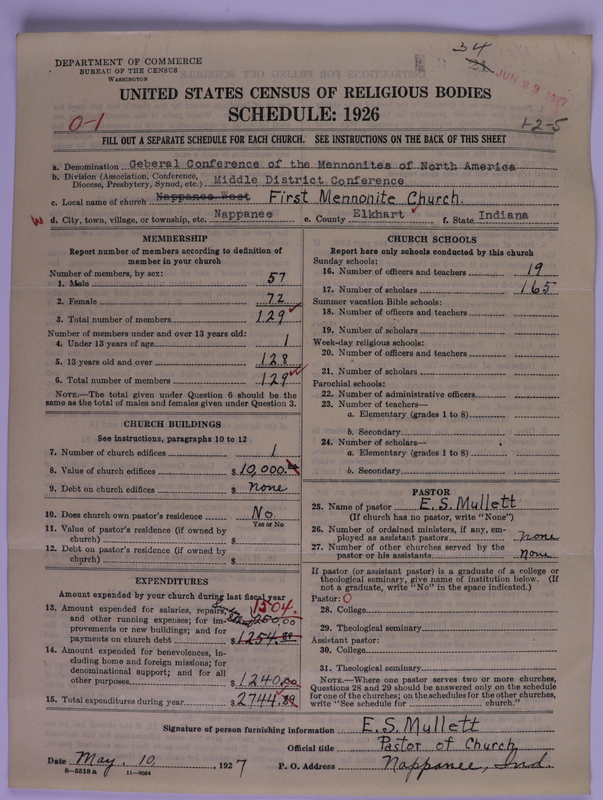 34
DEPARTMENT OF COMMERCE
BUREAU OF THE CENSUS
WASHINGTON
JUN 29 1927
UNITED STATES CENSUS OF RELIGIOUS BODIES
SCHEDULE: 1926
0-1
1-2-5
FILL OUT A SEPARATE SCHEDULE FOR EACH CHURCH. SEE INSTRUCTIONS ON THE BACK OF THIS SHEET
a. Denomination Geberal Conference of the Mennonites of North America
b. Division (Association, Conference, Diocese, Presbytery, Synod, etc.) Middle District Conference
c. Local name of church Nappanee West First Mennonite Church.
d. City, town, village, or township, etc. Nappanee e. County Elkhart f. State Indiana
MEMBERSHIP
Report number of members according to definition of
member in your church
Number of members, by sex:
1. Male 57
2. Female 72
3. Total number of members 129
Number of members under and over 13 years old:
4. Under 13 years of age 1
5. 13 years old and over 128
6. Total number of members 129
NOTE.—The total given under Question 6 should be the
same as the total of males and females given under Question 3.
CHURCH BUILDINGS
See instructions, paragraphs 10 to 12
7. Number of church edifices 1
8. Value of church edifices $ 10,000.
9. Debt on church edifices $ none
10. Does church own pastor's residence No
Yes or No
11. Value of pastor's residence (if owned by
church) $
12. Debt on pastor's residence (if owned by
church) $
EXPENDITURES
Amount expended by your church during last fiscal year
13. Amount expended for salaries, repairs, 1504.
and other running expenses; for im- 250.00
provements or new buildings; and for
payments on church debt $ 1254.89
14. Amount expended for benevolences, in-
cluding home and foreign missions; for
denominational support; and for all
other purposes $ 1240.00
15. Total expenditures during year $ 2744.89
CHURCH SCHOOLS
Report here only schools conducted by this church
Sunday schools:
16. Number of officers and teachers 19
17. Number of scholars 165
Summer vacation Bible schools:
18. Number of officers and teachers
19. Number of scholars
Week-day religious schools:
20. Number of officers and teachers
21. Number of scholars
Parochial schools:
22. Number of administrative officers
23. Number of teachers—
a. Elementary (grades 1 to 8)
b. Secondary
24. Number of scholars—
a. Elementary (grades 1 to 8)
b. Secondary
PASTOR
25. Name of pastor E. S. Mullett
(If church has no pastor, write "None")
26. Number of ordained ministers, if any, em-
ployed as assistant pastors none
27. Number of other churches served by the
pastor or his assistants none
If pastor (or assistant pastor) is a graduate of a college or
theological seminary, give name of institution below. (If
not a graduate, write "No" in the space indicated.)
Pastor: 0
28. College
29. Theological seminary
Assistant pastor:
30. College
31. Theological seminary
NOTE.—Where one pastor serves two or more churches,
Questions 28 and 29 should be answered only on the schedule
for one of the churches; on the schedules for the other churches,
write "See schedule for church."
Signature of person furnishing information E. S. Mullett
Official title Pastor of Church
Date May. 10, 1927 P. O. Address Nappanee, Ind.
8-5518 a 11-9054